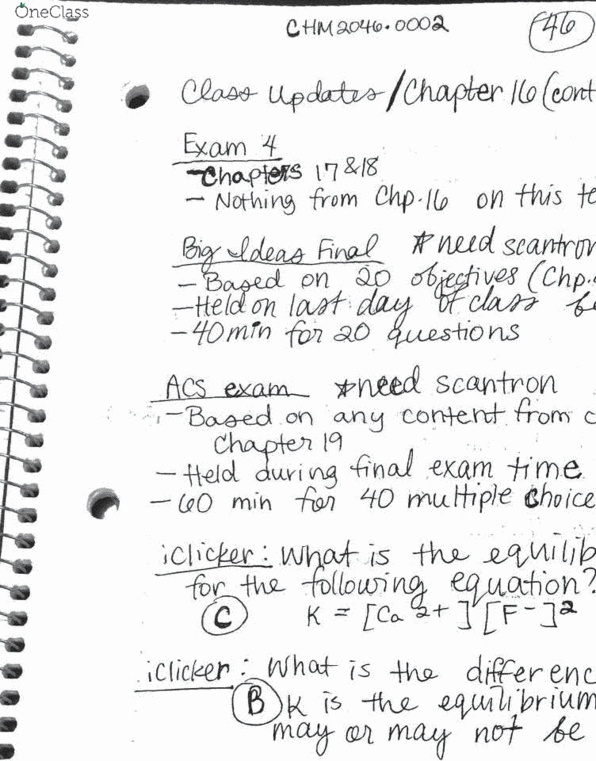 OneClass
CHM2046.0002
46
Class Updates/Chapter 16 (cont
Exam 4
- Chapters 17 & 18
- Nothing from Chp. 16 on this te
Big Ideas Final * need scantron
- Based on 20 objectives (Chp.
- Held on last day of class be
- 40 min for 20 questions
ACS exam * need scantron
- Based on any content from c
Chapter 19
- Held during final exam time
- 60 min for 40 multiple choice
iClicker: What is the equilib
for the following equation?
C K = [Ca 2+] [F-]²
iClicker: What is the differenc
B K is the equilibrium
may or may not be